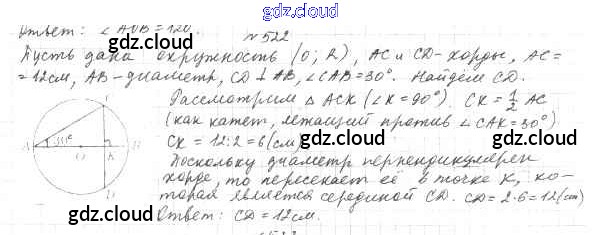 gdz.cloud
Ответ: ∠AOB = 120°.
№522
Пусть дана окружность (O; R), AC и CD - хорды, AC =
= 12см, AB - диаметр, CD ⊥ AB, ∠CAB = 30°. Найдем CD.
Рассмотрим △ ACK (∠K = 90°). CK = 1/2 AC
(как катет, лежащий против ∠CAK = 30°)
CK = 12:2 = 6 (см)
gdz.cloud gdz.cloud
Поскольку диаметр перпендикулярен
хорде, то пересекает её в точке K, ко-
торая является серединой CD. CD = 2·6 = 12 (см)
Ответ: CD = 12см.
A 30° O K B
C
D
gdz.cloud gdz.cloud
gdz.cloud